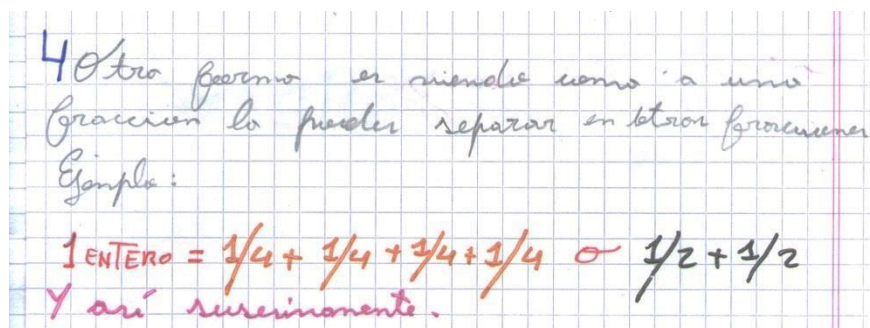 4 Otra forma es viendo como a una
fracción la puedes separar en otras fracciones
Ejemplo:
1 ENTERO = 1/4 + 1/4 + 1/4 + 1/4 o 1/2 + 1/2
Y así susesivamente.